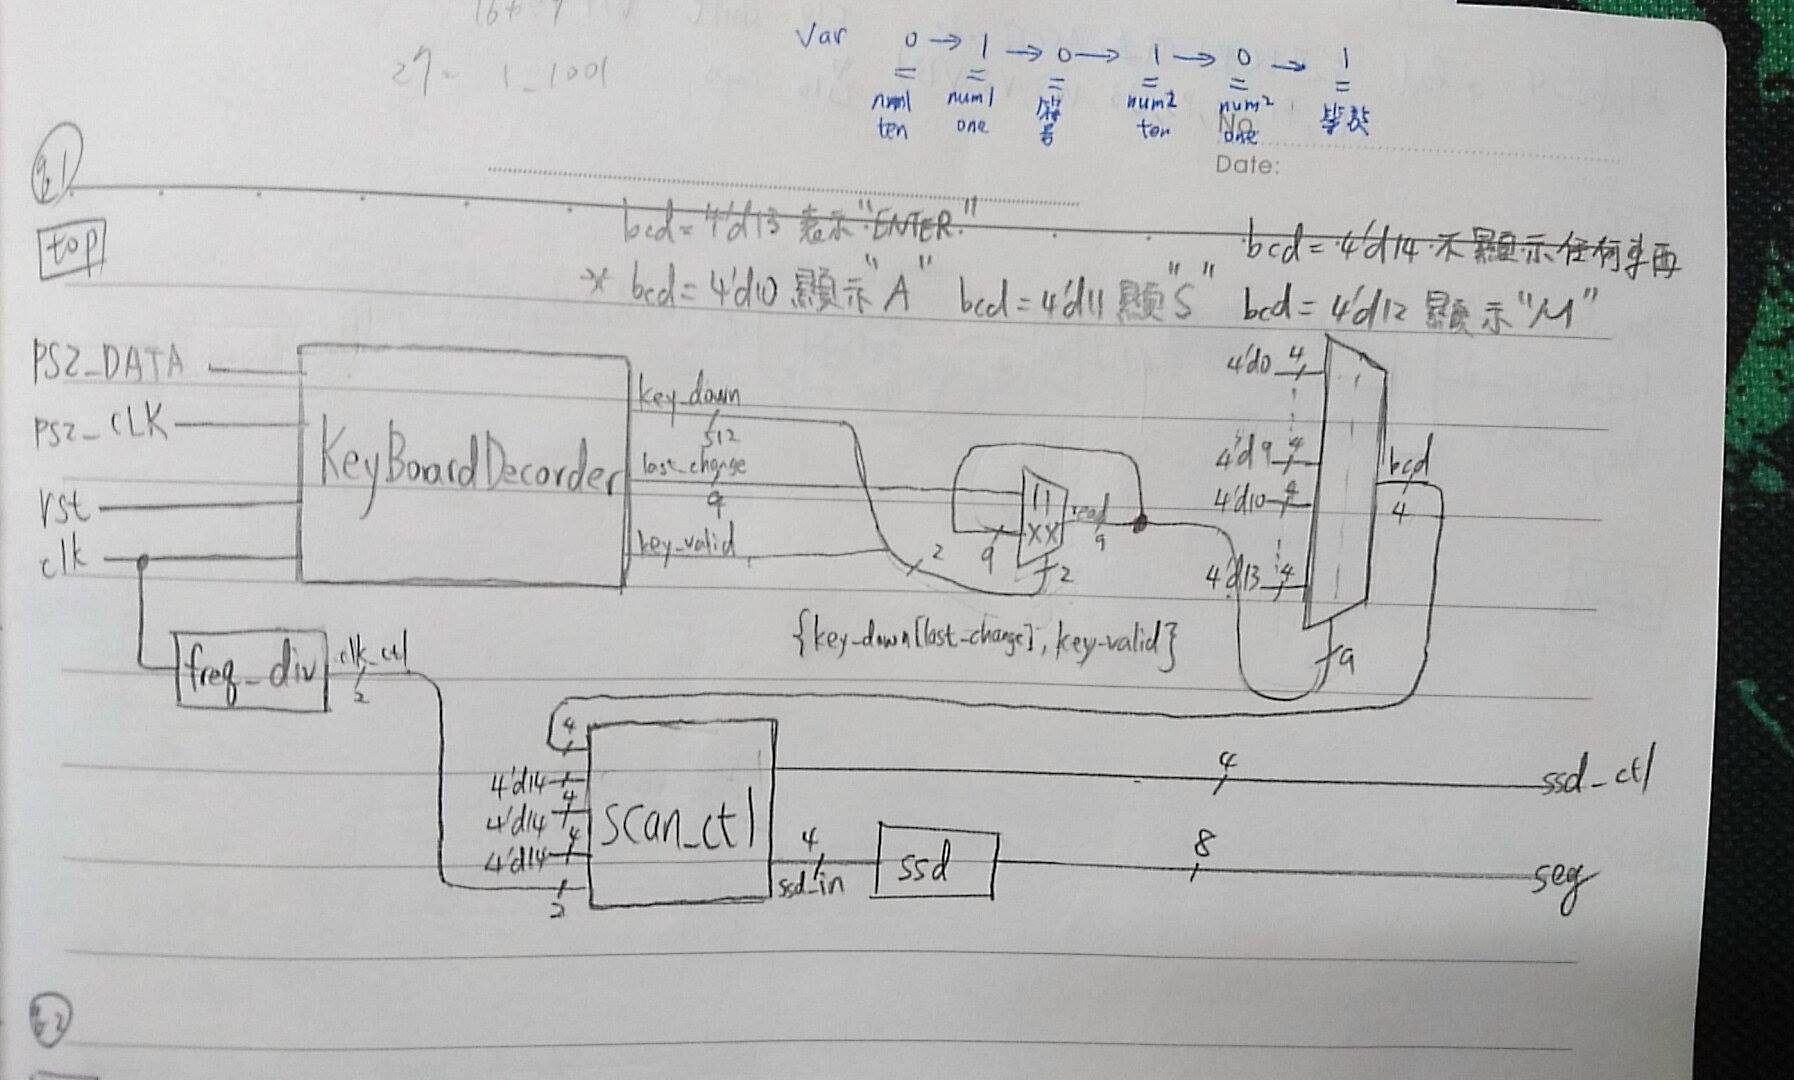 Var 0 → 1 → 0 → 1 → 0 → 1
num1 ten
num1 one
符号
num2 ten
num2 one
27 - 1_1001
No.
Date:
top
bcd = 4'd13 表示 "ENTER"
bcd = 4'd14 不顯示任何東西
* bcd = 4'd10 顯示 "A" bcd = 4'd11 顯 "S" bcd = 4'd12 顯示 "M"
PS2_DATA
PS2_CLK
rst
clk
KeyBoardDecorder
key_down
512
last_change
9
key_valid
2
9
11
XX
2
read
9
4'd0 4
4'd9 4
4'd10 4
4'd13 4
9
bcd
4
{key_down[last_change], key_valid}
freq_div
clk_ctl
2
4
4'd14 4
4'd14 4
4'd14
2
scan_ctl
4
ssd_ctl
4
ssd_in
ssd
8
seg